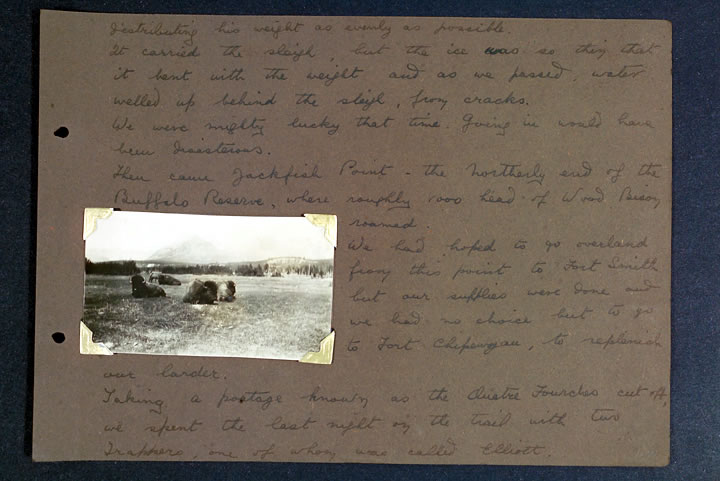 distributing his weight as evenly as possible.
It carried the sleigh, but the ice was so thin that
it bent with the weight and as we passed, water
welled up behind the sleigh, from cracks.
We were mighty lucky that time. Going in would have
been disasterous.
Then came Jackfish Point - the Northerly end of the
Buffalo Reserve, where roughly 1000 head of Wood Bison
roamed.
We had hoped to go overland
from this point to Fort Smith
but our supplies were done and
we had no choice but to go
to Fort Chipewyan, to replenish
our larder.
Taking a portage known as the Quatre Fourches cut off,
we spent the last night on the trail with two
Trappers, one of whom was called Elliott.